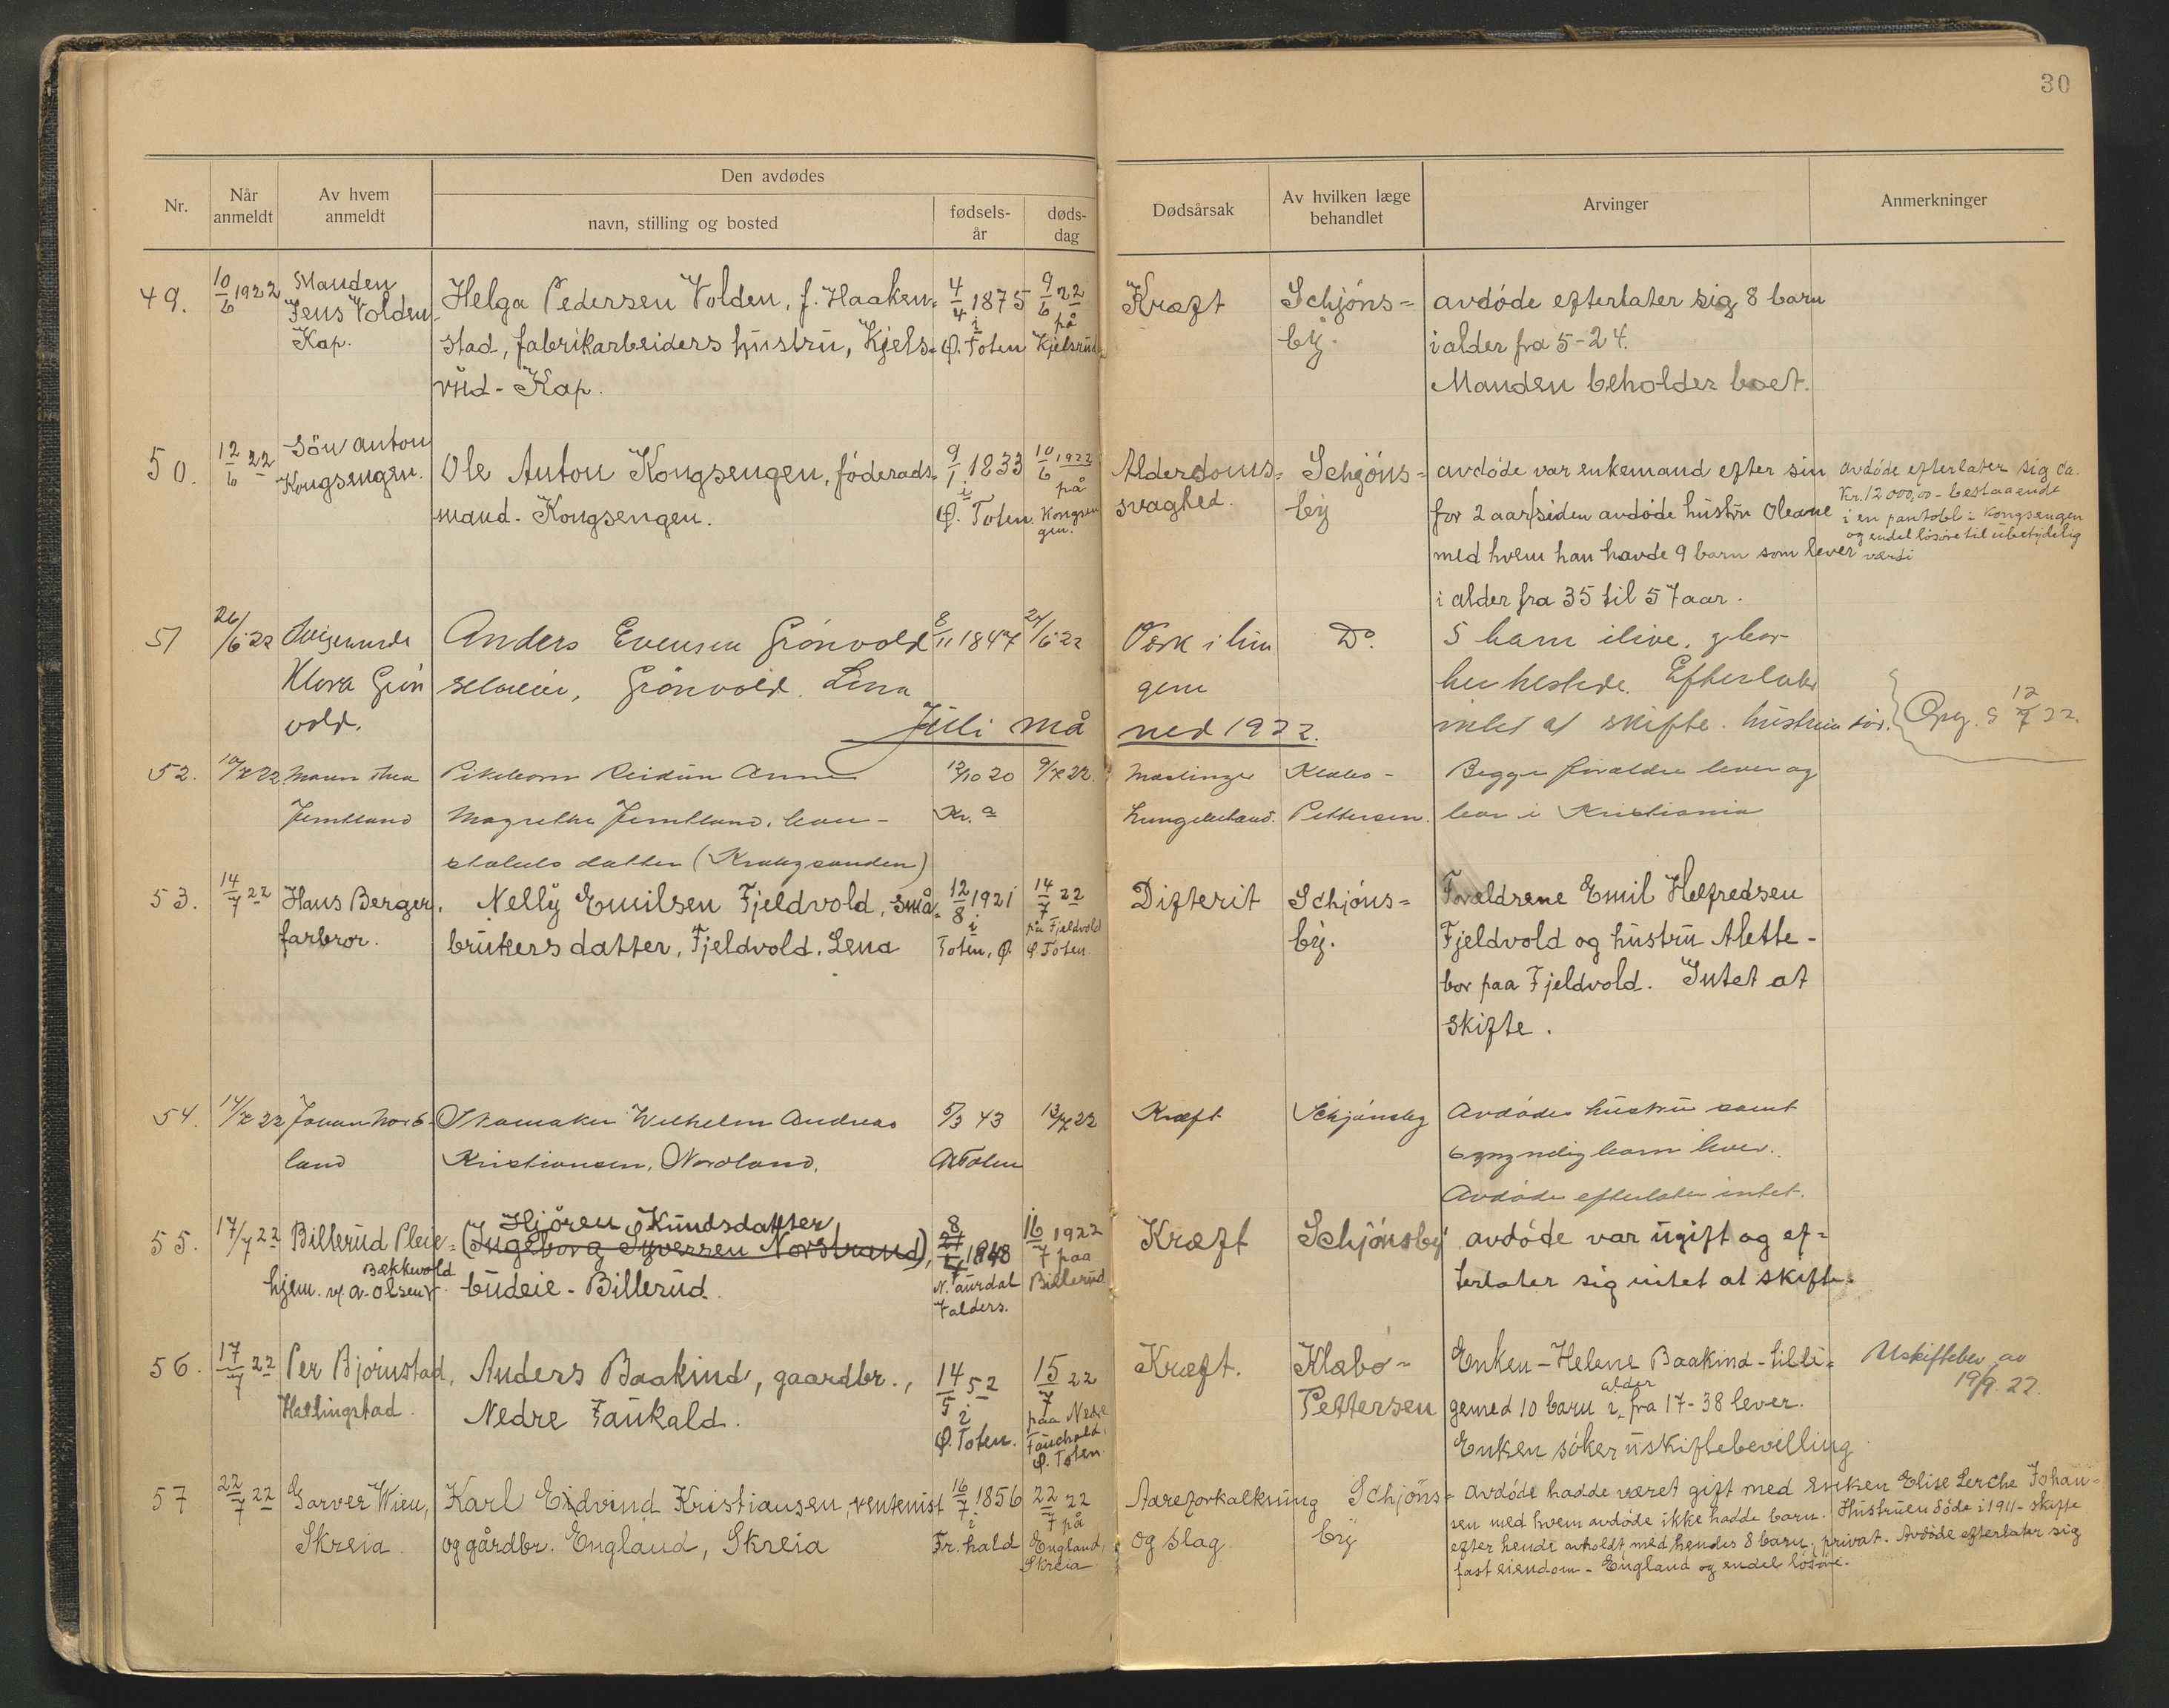 30
Nr.
Når anmeldt
Av hvem anmeldt
Den avdødes
navn, stilling og bosted
fødsels-år
døds-dag
Dødsårsak
Av hvilken læge behandlet
Arvinger
Anmerkninger
49.
10/6 1922
Manden
Jens Volden
Kap.
Helga Pedersen Volden, f. Haaken=
stad, fabrikarbeiders hustru, Kjels=
rud - Kap.
4/4 1875
i
Ø. Toten
9/6 22
på
Kjelsrud
Kræft
Schjøns=
by.
avdøde efterlater sig 8 barn
i alder fra 5-24.
Manden beholder boet.
50.
12/6 22
Søn Anton
Kongsengen.
Ole Anton Kongsengen, føderads=
mand. Kongsengen.
9/1 1833
i
Ø. Toten.
10/6 1922
på
Kongsen
gen.
Alderdoms=
svaghed.
Schjøns=
by
avdøde var enkemand efter sin
for 2 aar siden avdøde hustru Oleane
med hvem han havde 9 barn som lever
i alder fra 35 til 57 aar.
avdøde efterlater sig ca.
Kr. 12 000,00 - bestaaende
i en pantobl. i Kongsengen
og endel løsøre til ubetydelig
værdi
51
26/6 22
Svigerinde
Klara Grøn
vold.
Anders Evensen Grønvold
selveier, Grønvold. Lena
8/11 1847
24/6 22
Vesk i lun
gene
Do.
5 barn ilive,
her hestede. Efterlater
intet at skifte. hustruen død.
Opg. S 12/7 22.
Juli måned 1922.
52.
10/7 22
Jemtland
Pikebarn Reidun Anna
Magrethe Jemtland,
datter (Kraugsanden)
12/10 20
Kr.a
9/7 22.
Mæslinger
Lungebetænd.
Klabo-
Pettersen.
Begge forældre lever og
bor i Kristiania
53.
14/7 22
Hans Berger,
farbror.
Nelly Emilsen Fjeldvold, små=
brukers datter, Fjeldvold. Lena
12/8 1921
i
Toten, Ø.
14/7 22
på Fjeldvold
Ø. Toten.
Difterit
Schjøns=
by.
Forældrene Emil Helfredsen
Fjeldvold og hustru Alette -
bor paa Fjeldvold. Intet at
skifte.
54.
14/7 22
Johan Nord-
land
Skomaker Wilhelm Andreas
Kristiansen, Nordland.
5/3 43
Ø. Toten
13/7 22
Kræft
Schjønsby
Avdødes hustru samt
6 myndig barn lever.
Avdøde efterlater intet.
55.
17/7 22
Billerud Pleie=
Bækkevold
hjem. v. A. Olsen
Hjøren Knudsdatter
(Ingeborg Syversen Norstrand),
budeie - Billerud.
8
1848
N. Aurdal
Valders.
16/7 1922
paa
Billerud
Kræft
Schjønsby
avdøde var ugift og ef=
terlater sig intet at skifte.
56.
17/7 22
Per Bjørnstad,
Hallingstad.
Anders Baakind, gaardbr.,
Nedre Faukald.
14/5 52
i
Ø. Toten.
15/7 22
paa Nedre
Fauchald,
Ø. Toten.
Kræft.
Klabo-
Pettersen
Enken - Helene Baakind - tilli=
gemed 10 barn i alder fra 17-38 lever.
Enken søker uskiftebevilling
Uskiftebev. av
19/9. 22.
57
22/7 22
Garver Wien,
Skreia.
Karl Eidvind Kristiansen, rentenist
og gårdbr. England, Skreia
16/7 1856
i
Fr.hald
22/7 22
på
England,
Skreia
Aareforkalkning
og slag.
Schjøns=
by
avdøde hadde været gift med enken Elise Lerche Johan=
sen med hvem avdøde ikke hadde barn. Hustruen døde i 1911 - skifte
efter hende avholdt med hendes 8 barn, privat. Avdøde efterlater sig
fast eiendom - England og endel løsøre.